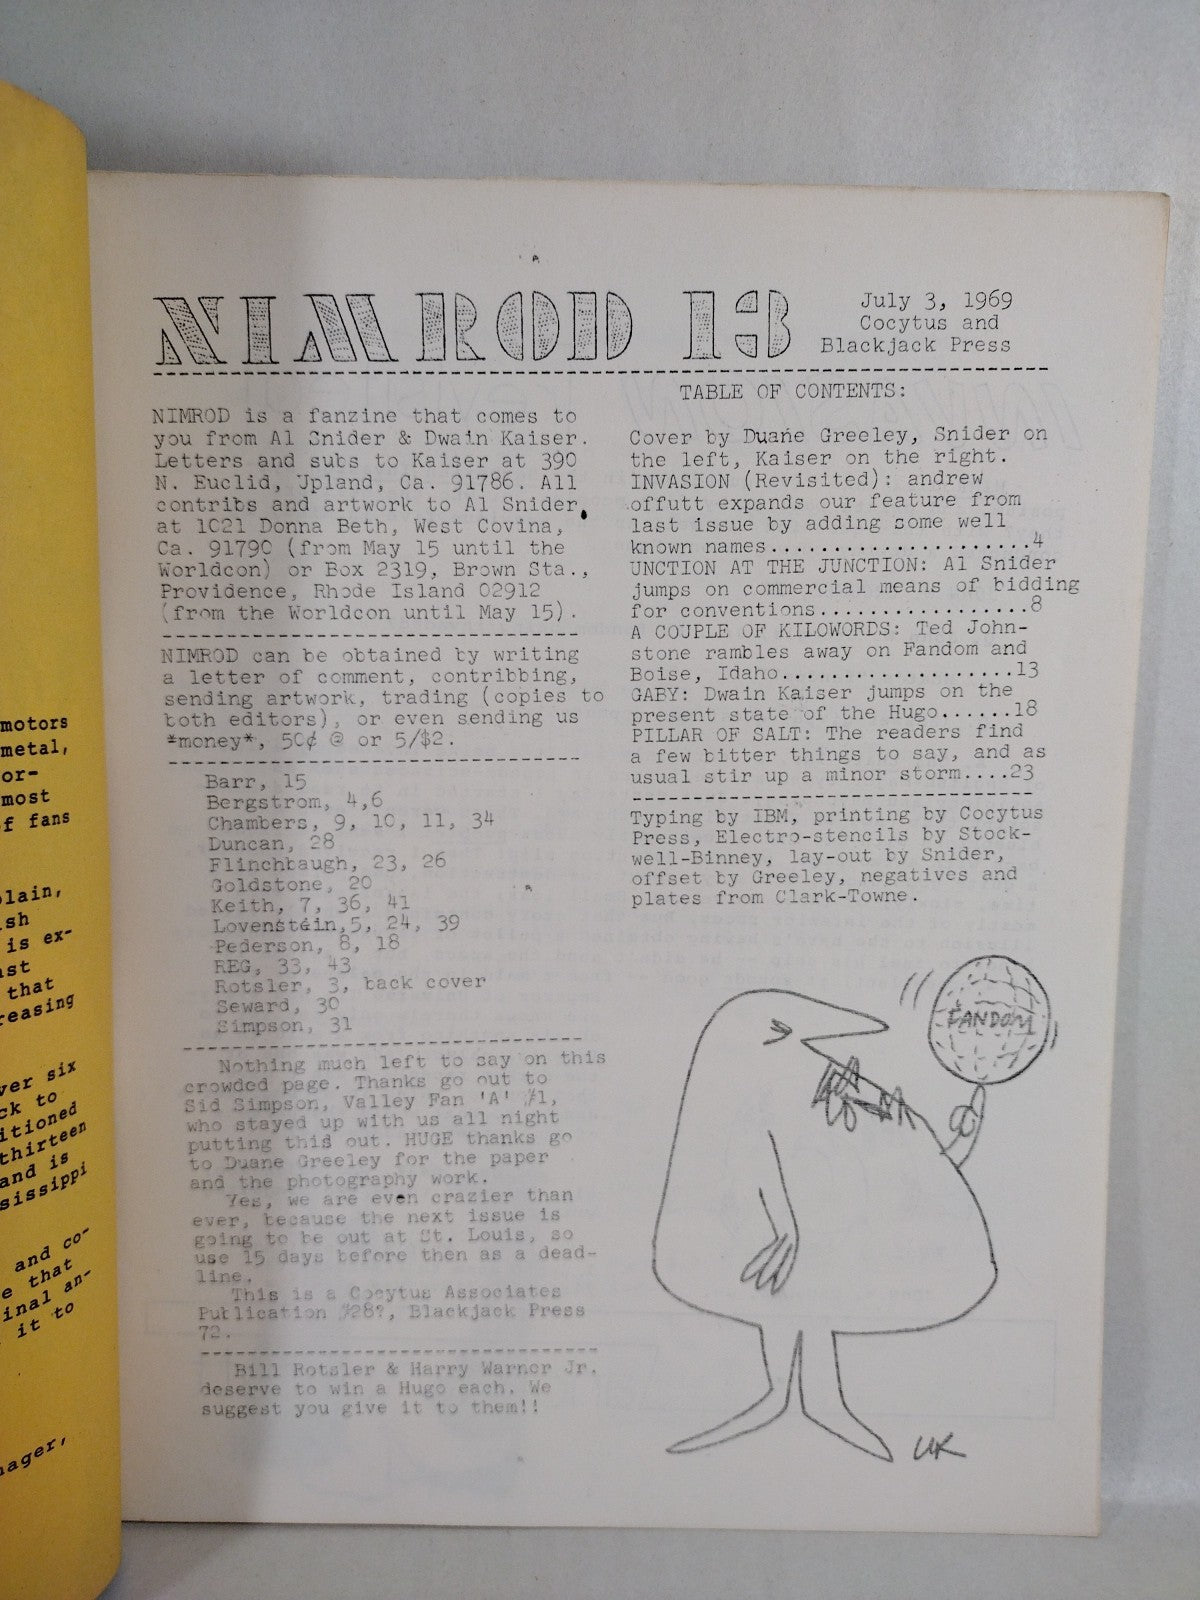 motors
metal,
or-
most
of fans
plain,
ish
is ex-
ast
that
reasing
ver six
ck to
itioned
thirteen
and is
sissippi
and co-
e that
inal an-
it to
nager,
NIMROD 13
July 3, 1969
Cocytus and
Blackjack Press
NIMROD is a fanzine that comes to
you from Al Snider & Dwain Kaiser.
Letters and subs to Kaiser at 390
N. Euclid, Upland, Ca. 91786. All
contribs and artwork to Al Snider
at 1021 Donna Beth, West Covina,
Ca. 91790 (from May 15 until the
Worldcon) or Box 2319, Brown Sta.,
Providence, Rhode Island 02912
(from the Worldcon until May 15).
NIMROD can be obtained by writing
a letter of comment, contribbing,
sending artwork, trading (copies to
both editors), or even sending us
*money*, 50¢ @ or 5/$2.
Barr, 15
Bergstrom, 4,6
Chambers, 9, 10, 11, 34
Duncan, 28
Flinchbaugh, 23, 26
Goldstone, 20
Keith, 7, 36, 41
Lovenstein,5, 24, 39
Pederson, 8, 18
REG, 33, 43
Rotsler, 3, back cover
Seward, 30
Simpson, 31
Nothing much left to say on this
crowded page. Thanks go out to
Sid Simpson, Valley Fan 'A' #1,
who stayed up with us all night
putting this out. HUGE thanks go
to Duane Greeley for the paper
and the photography work.
Yes, we are even crazier than
ever, because the next issue is
going to be out at St. Louis, so
use 15 days before then as a dead-
line.
This is a Cocytus Associates
Publication #28?, Blackjack Press
72.
Bill Rotsler & Harry Warner Jr.
deserve to win a Hugo each. We
suggest you give it to them!!
TABLE OF CONTENTS:
Cover by Duane Greeley, Snider on
the left, Kaiser on the right.
INVASION (Revisited): andrew
offutt expands our feature from
last issue by adding some well
known names.....................4
UNCTION AT THE JUNCTION: Al Snider
jumps on commercial means of bidding
for conventions.................8
A COUPLE OF KILOWORDS: Ted John-
stone rambles away on Fandom and
Boise, Idaho...................13
GABY: Dwain Kaiser jumps on the
present state of the Hugo......18
PILLAR OF SALT: The readers find
a few bitter things to say, and as
usual stir up a minor storm....23
Typing by IBM, printing by Cocytus
Press, Electro-stencils by Stock-
well-Binney, lay-out by Snider,
offset by Greeley, negatives and
plates from Clark-Towne.
FANDOM